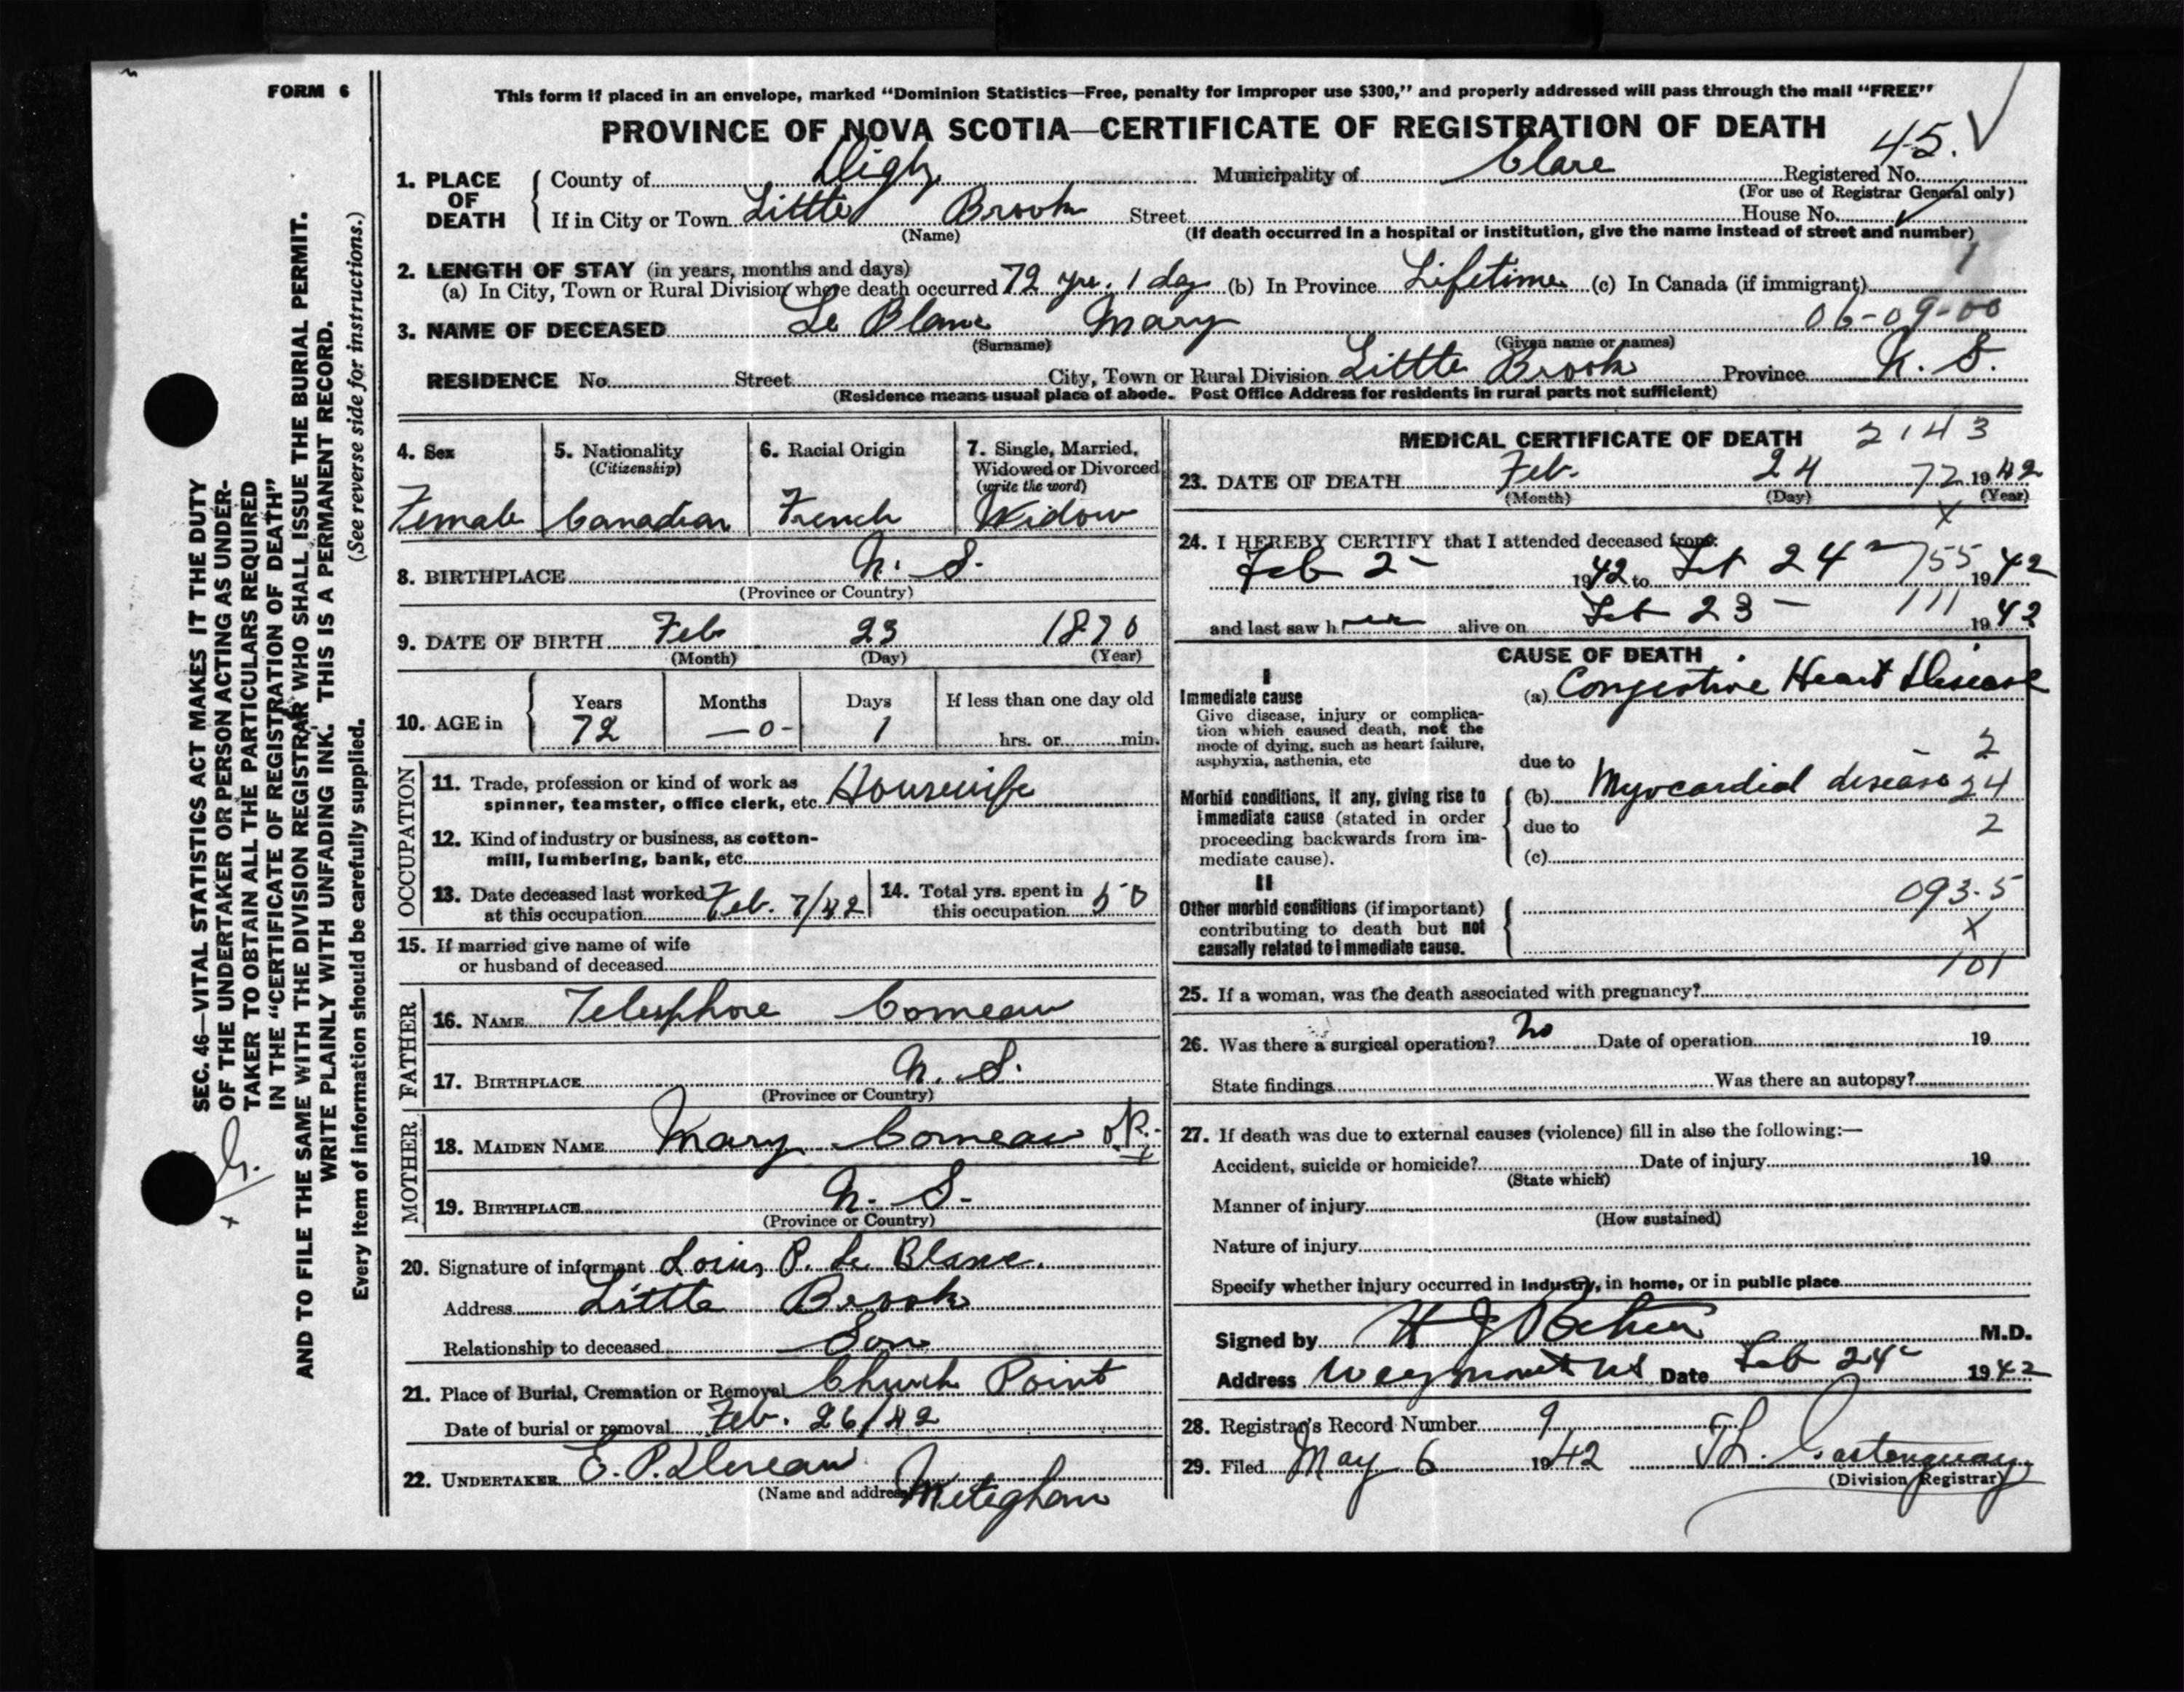 FORM 6
This form if placed in an envelope, marked “Dominion Statistics—Free, penalty for improper use $300,” and properly addressed will pass through the mail “FREE”
PROVINCE OF NOVA SCOTIA—CERTIFICATE OF REGISTRATION OF DEATH
45.
1. PLACE OF DEATH
County of Digby Municipality of Clare Registered No.
(For use of Registrar General only)
If in City or Town Little Brook Street House No.
(Name) (If death occurred in a hospital or institution, give the name instead of street and number)
1
2. LENGTH OF STAY (in years, months and days)
(a) In City, Town or Rural Division where death occurred 72 yrs. 1 day (b) In Province Lifetime (c) In Canada (if immigrant)
06-09-00
3. NAME OF DECEASED Le Blanc Mary
(Surname) (Given name or names)
RESIDENCE No. Street City, Town or Rural Division Little Brook Province N. S.
(Residence means usual place of abode. Post Office Address for residents in rural parts not sufficient)
4. Sex
Female
5. Nationality
(Citizenship)
Canadian
6. Racial Origin
French
7. Single, Married,
Widowed or Divorced
(write the word)
Widow
8. BIRTHPLACE N. S.
(Province or Country)
9. DATE OF BIRTH Feb 23 1870
(Month) (Day) (Year)
10. AGE in
Years Months Days If less than one day old
72 —0- 1 hrs. or min.
OCCUPATION
11. Trade, profession or kind of work as
spinner, teamster, office clerk, etc. Housewife
12. Kind of industry or business, as cotton-
mill, lumbering, bank, etc.
13. Date deceased last worked
at this occupation Feb. 7/42
14. Total yrs. spent in
this occupation 50
15. If married give name of wife
or husband of deceased
FATHER
16. NAME Telesphore Comeau
17. BIRTHPLACE N. S.
(Province or Country)
MOTHER
18. MAIDEN NAME Mary Comeau OK.-
19. BIRTHPLACE N. S.
(Province or Country)
20. Signature of informant Louis P. Le Blanc.
Address Little Brook
Relationship to deceased Son
21. Place of Burial, Cremation or Removal Church Point
Date of burial or removal Feb. 26/42
22. UNDERTAKER E. P. Deveau
(Name and address) Meteghan
MEDICAL CERTIFICATE OF DEATH 2143
23. DATE OF DEATH Feb. 24 72 1942
(Month) (Day) (Year)
X
24. I HEREBY CERTIFY that I attended deceased from:
Feb 2 1942 to Feb 24 755 1942
and last saw her alive on Feb 23 111 1942
CAUSE OF DEATH
I
Immediate cause
Give disease, injury or complica-
tion which caused death, not the
mode of dying, such as heart failure,
asphyxia, asthenia, etc
(a) Congestive Heart Disease
2
due to
Morbid conditions, if any, giving rise to
immediate cause (stated in order
proceeding backwards from im-
mediate cause).
(b) Myocardial disease 24
due to 2
(c)
II
Other morbid conditions (if important)
contributing to death but not
causally related to immediate cause.
093.5
X
101
25. If a woman, was the death associated with pregnancy?
26. Was there a surgical operation? no Date of operation 19
State findings Was there an autopsy?
27. If death was due to external causes (violence) fill in also the following:—
Accident, suicide or homicide? Date of injury 19
(State which)
Manner of injury
(How sustained)
Nature of injury
Specify whether injury occurred in industry, in home, or in public place
Signed by H J M.D.
Address Weymouth NS Date Feb 24 1942
28. Registrar's Record Number 9
29. Filed May 6 1942 Castonguay
(Division Registrar)
SEC. 46—VITAL STATISTICS ACT MAKES IT THE DUTY
OF THE UNDERTAKER OR PERSON ACTING AS UNDER-
TAKER TO OBTAIN ALL THE PARTICULARS REQUIRED
IN THE “CERTIFICATE OF REGISTRATION OF DEATH”
AND TO FILE THE SAME WITH THE DIVISION REGISTRAR WHO SHALL ISSUE THE BURIAL PERMIT.
WRITE PLAINLY WITH UNFADING INK. THIS IS A PERMANENT RECORD.
Every item of information should be carefully supplied. (See reverse side for instructions.)